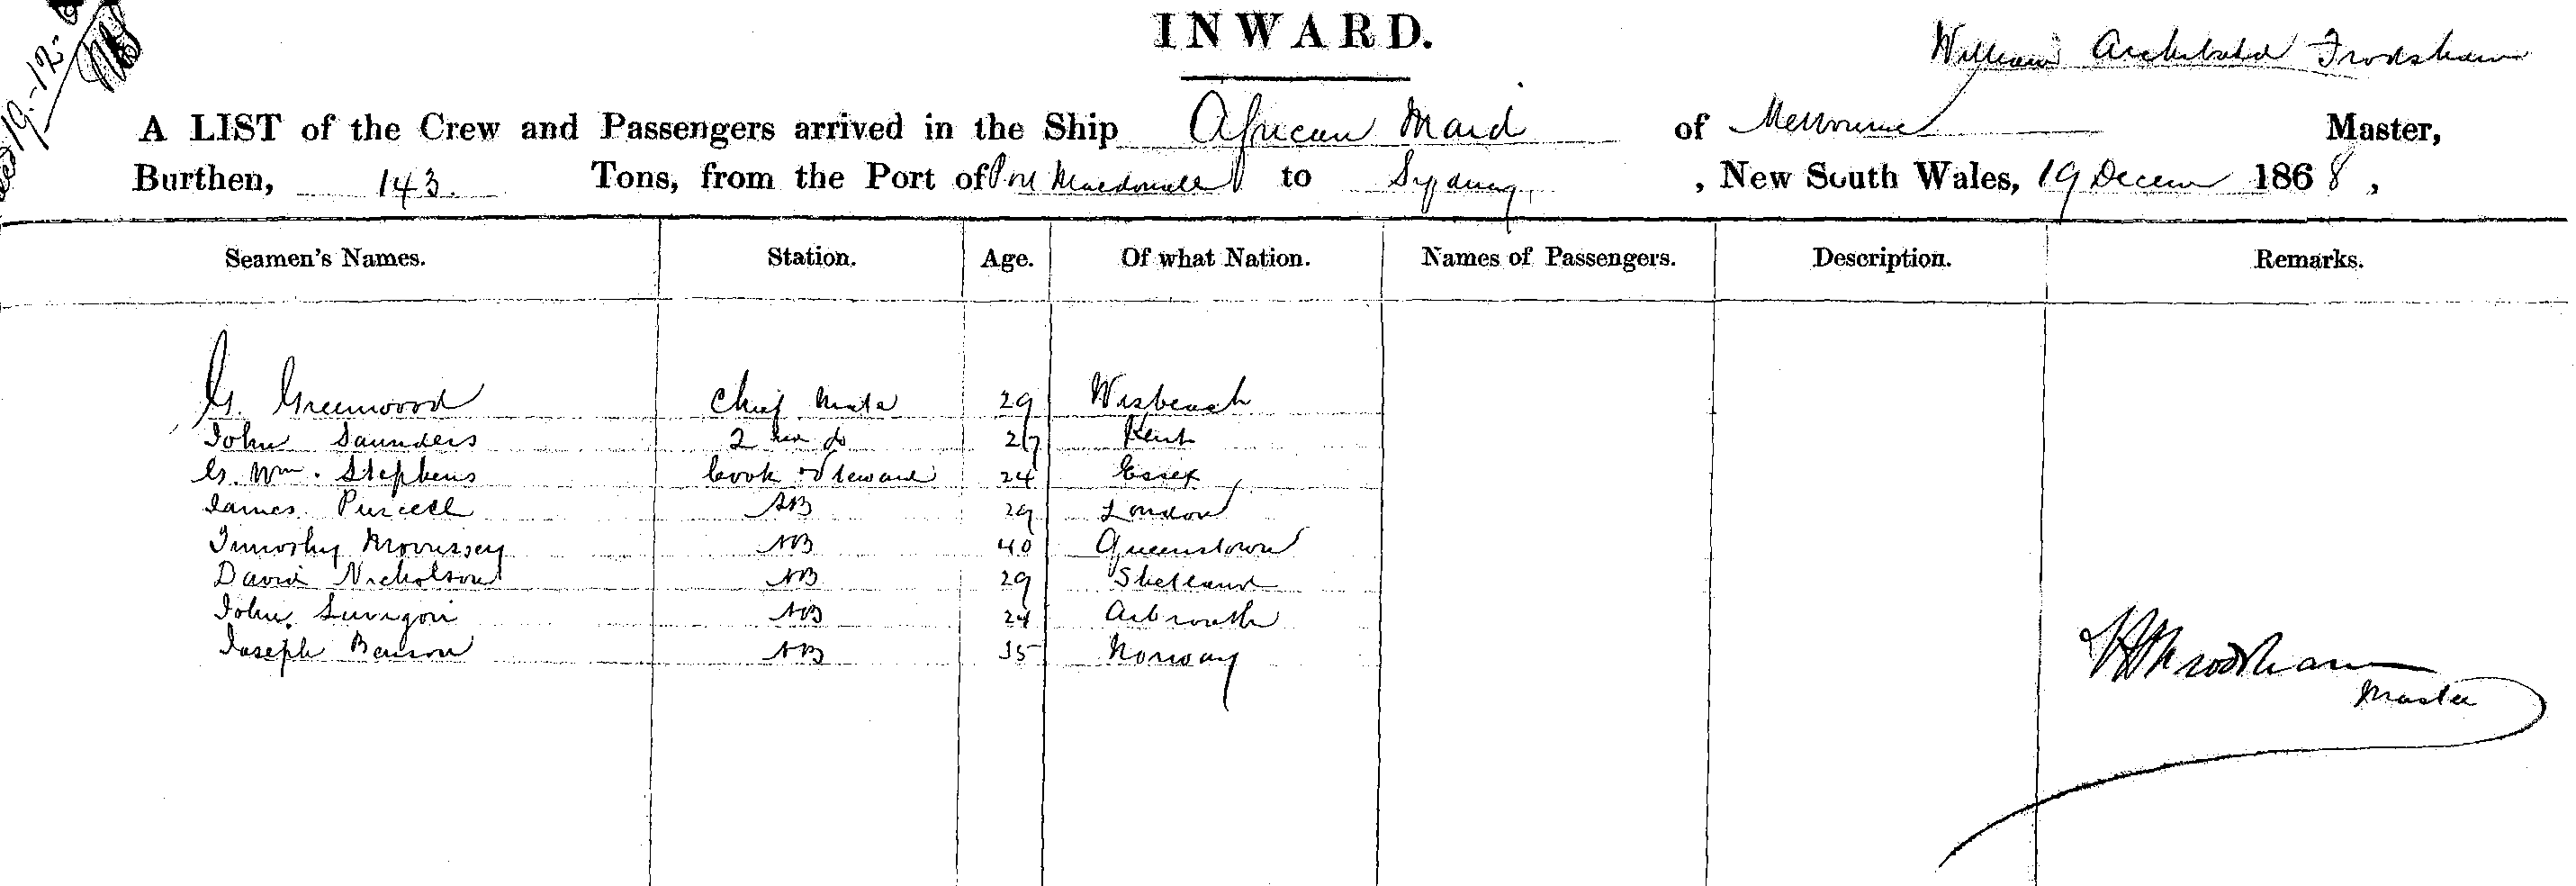 19-12-
INWARD.
William Archibald Frodsham
A LIST of the Crew and Passengers arrived in the Ship African Maid of Melbourne Master,
Burthen, 143. Tons, from the Port of Port Macdonnell to Sydney, , New South Wales, 19 Decem 1868,
Seamen's Names. Station. Age. Of what Nation. Names of Passengers. Description. Remarks.
G. Greenwood Chief Mate 29 Wisbeach
John Saunders 2 do 27 Kent
G. Wm. Stephens Cook & Steward 24 Essex
James Purcell AB 29 London
Timothy Morrissey AB 40 Queenstown
David Nicholson AB 29 Shetland
John AB 24 Arbroath
Joseph Benson AB 35 Norway
Frodsham
Master